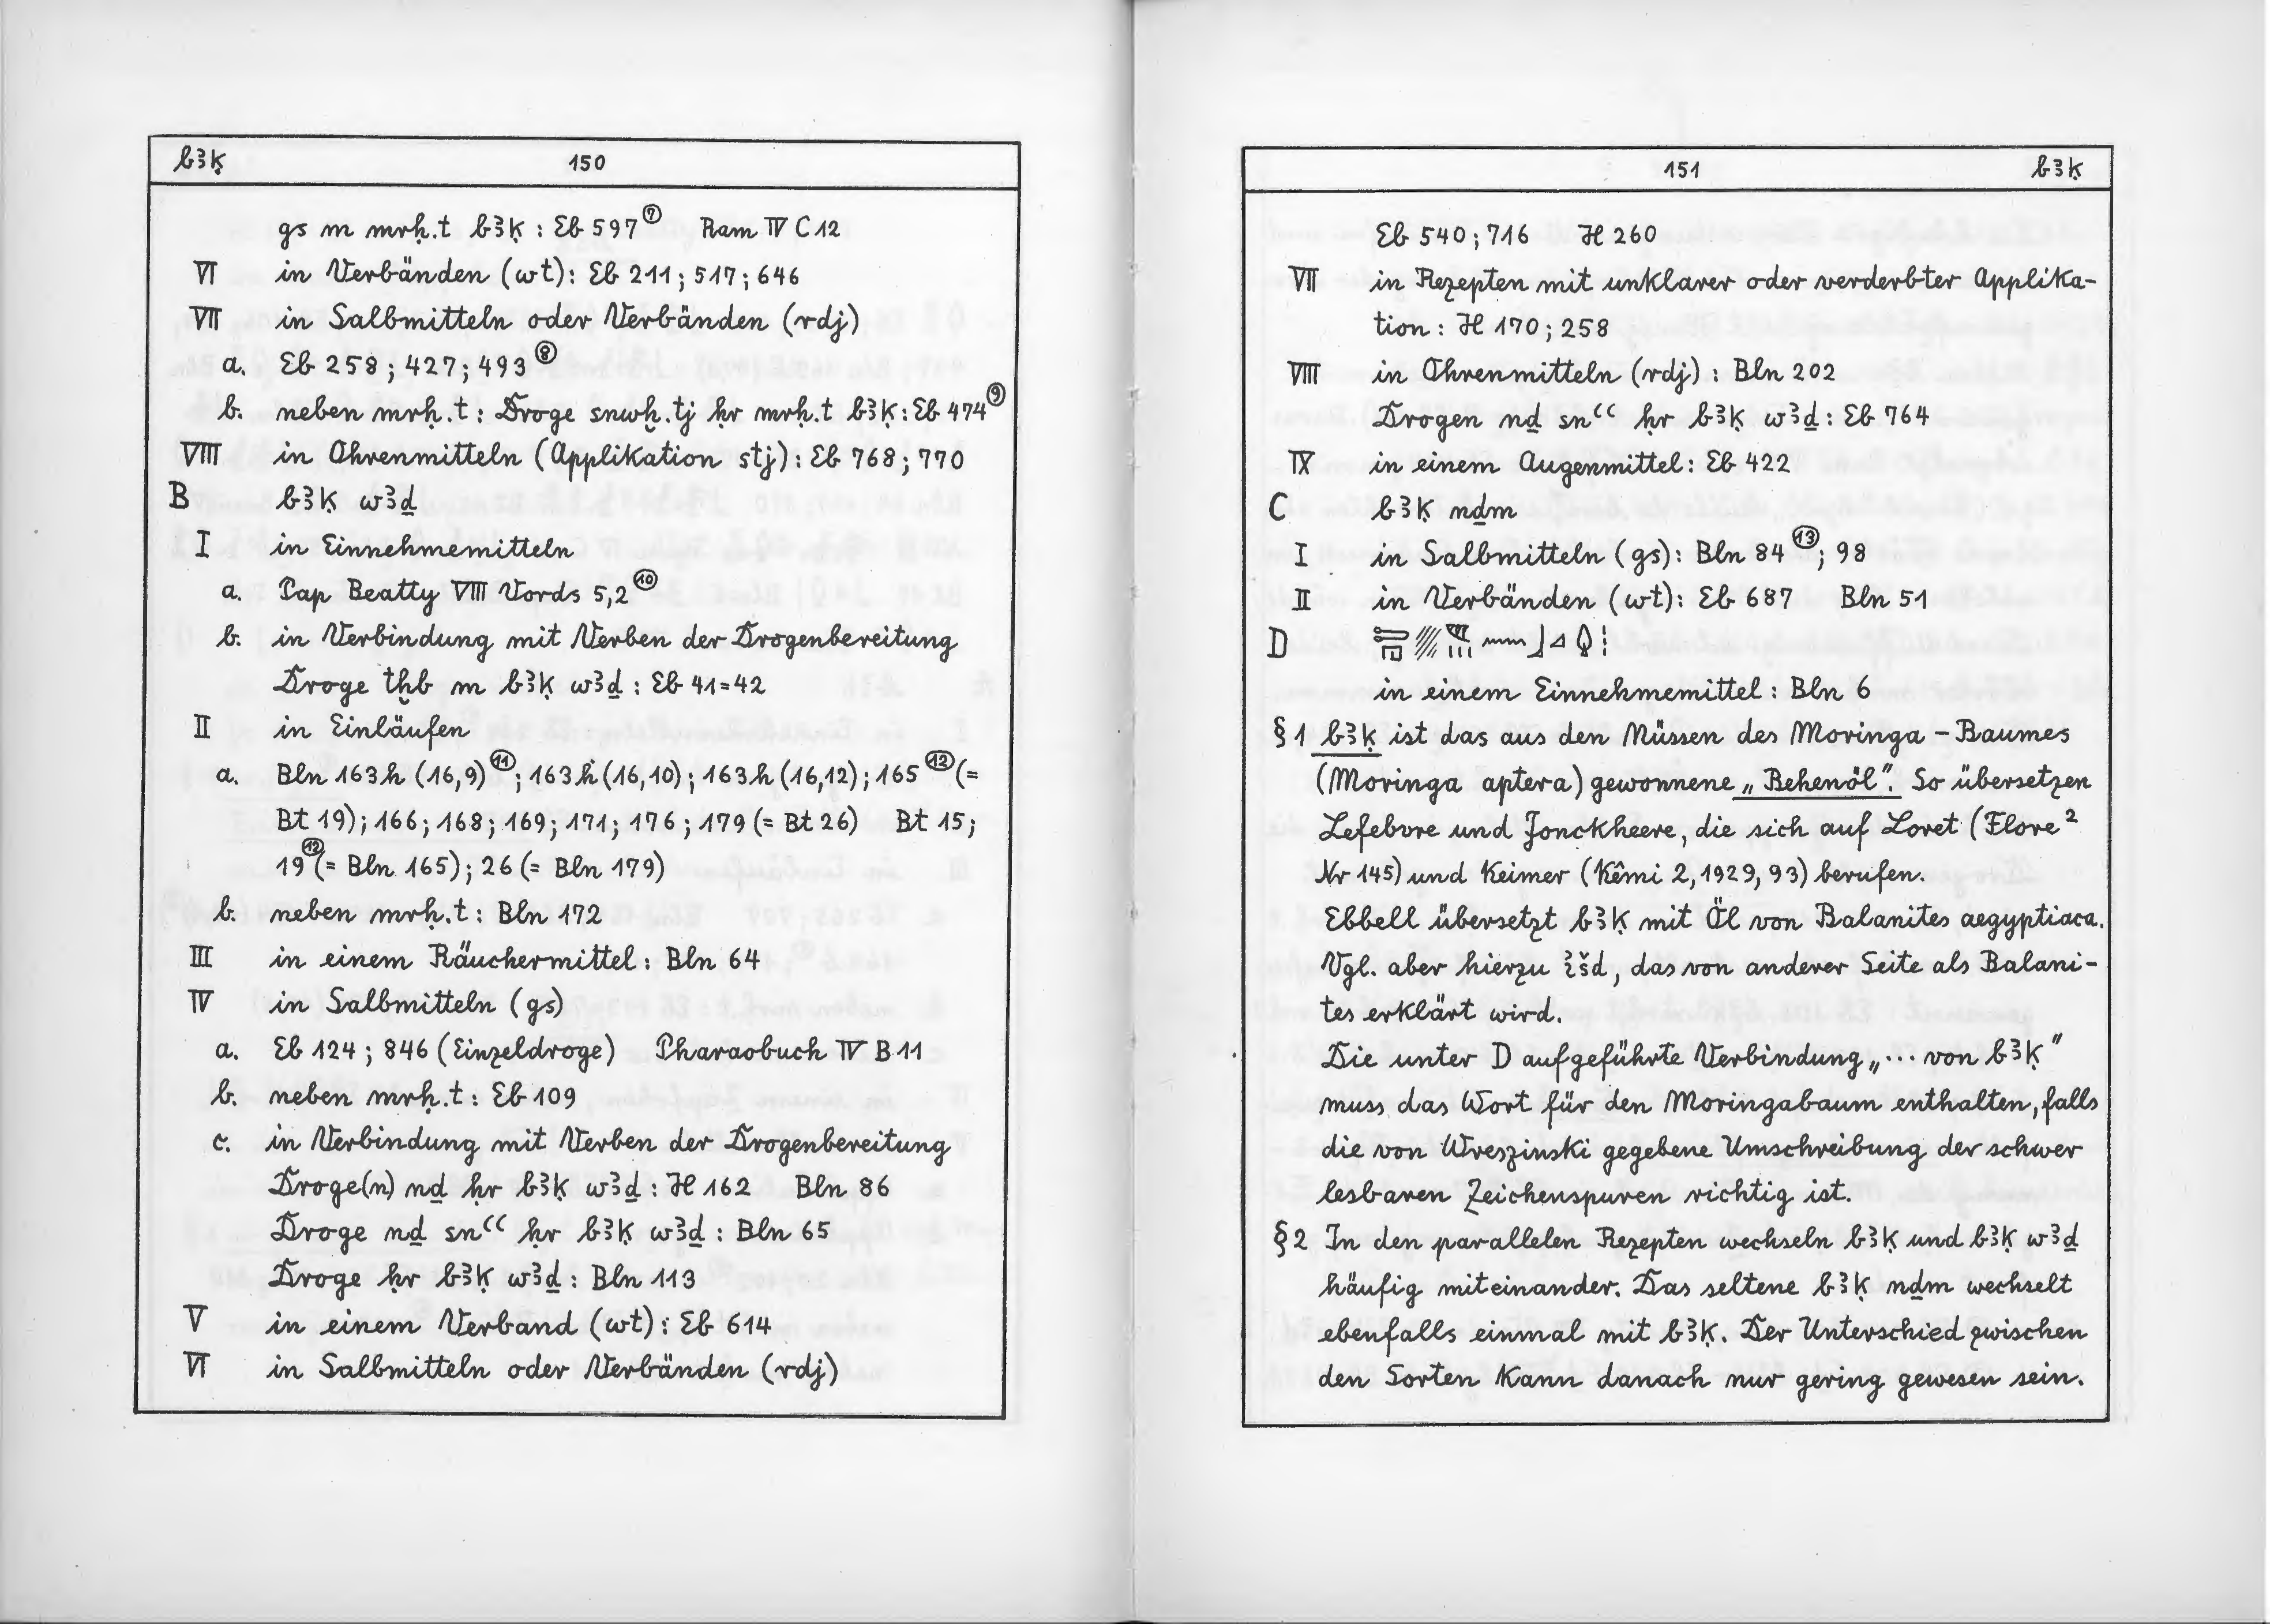 bꜣḳ 150
gs m mrḥ.t bꜣḳ : Eb 597 ⑦ Ram IV C 12
VI in Verbänden (wt): Eb 211; 517; 646
VII in Salbmitteln oder Verbänden (rdj)
a. Eb 258; 427; 493 ⑧
b. neben mrḥ.t: Droge snwḫ.tj ḥr mrḥ.t bꜣḳ: Eb 474 ⑨
VIII in Ohrenmitteln (Applikation stj): Eb 768; 770
B bꜣḳ wꜣḏ
I in Einnehmemitteln
a. Pap Beatty VIII Vords 5,2 ⑩
b. in Verbindung mit Verben der Drogenbereitung
Droge tḫb m bꜣḳ wꜣḏ : Eb 41=42
II in Einläufen
a. Bln 163h (16,9) ⑪; 163h (16,10); 163h (16,12); 165 ⑫ (=
Bt 19); 166; 168; 169; 171; 176; 179 (= Bt 26) Bt 15;
19 ⑫ (= Bln 165); 26 (= Bln 179)
b. neben mrḥ.t: Bln 172
III in einem Räuchermittel: Bln 64
IV in Salbmitteln (gs)
a. Eb 124; 846 (Einzeldroge) Pharaobuch IV B 11
b. neben mrḥ.t: Eb 109
c. in Verbindung mit Verben der Drogenbereitung
Droge(n) nḏ ḥr bꜣḳ wꜣḏ : H 162 Bln 86
Droge nḏ snꜥꜥ ḥr bꜣḳ wꜣḏ : Bln 65
Droge ḥr bꜣḳ wꜣḏ : Bln 113
V in einem Verband (wt): Eb 614
VI in Salbmitteln oder Verbänden (rdj)
151 bꜣḳ
Eb 540; 716 H 260
VII in Rezepten mit unklarer oder verderbter Applika-
tion: H 170; 258
VIII in Ohrenmitteln (rdj) : Bln 202
Drogen nḏ snꜥꜥ ḥr bꜣḳ wꜣḏ : Eb 764
IX in einem Augenmittel: Eb 422
C bꜣḳ nḏm
I in Salbmitteln (gs): Bln 84 ⑬; 98
II in Verbänden (wt): Eb 687 Bln 51
D
in einem Einnehmemittel: Bln 6
§ 1 bꜣḳ ist das aus den Nüssen des Moringa-Baumes
(Moringa aptera) gewonnene „Behenöl". So übersetzen
Lefebvre und Jonckheere, die sich auf Loret (Flore²
Nr 145) und Keimer (Kêmi 2, 1929, 93) berufen.
Ebbell übersetzt bꜣḳ mit Öl von Balanites aegyptiaca.
Vgl. aber hierzu ꞽšd, das von anderer Seite als Balani-
tes erklärt wird.
Die unter D aufgeführte Verbindung „... von bꜣḳ"
muss das Wort für den Moringabaum enthalten, falls
die von Wreszinski gegebene Umschreibung der schwer
lesbaren Zeichenspuren richtig ist.
§ 2 In den parallelen Rezepten wechseln bꜣḳ und bꜣḳ wꜣḏ
häufig miteinander. Das seltene bꜣḳ nḏm wechselt
ebenfalls einmal mit bꜣḳ. Der Unterschied zwischen
den Sorten kann danach nur gering gewesen sein.